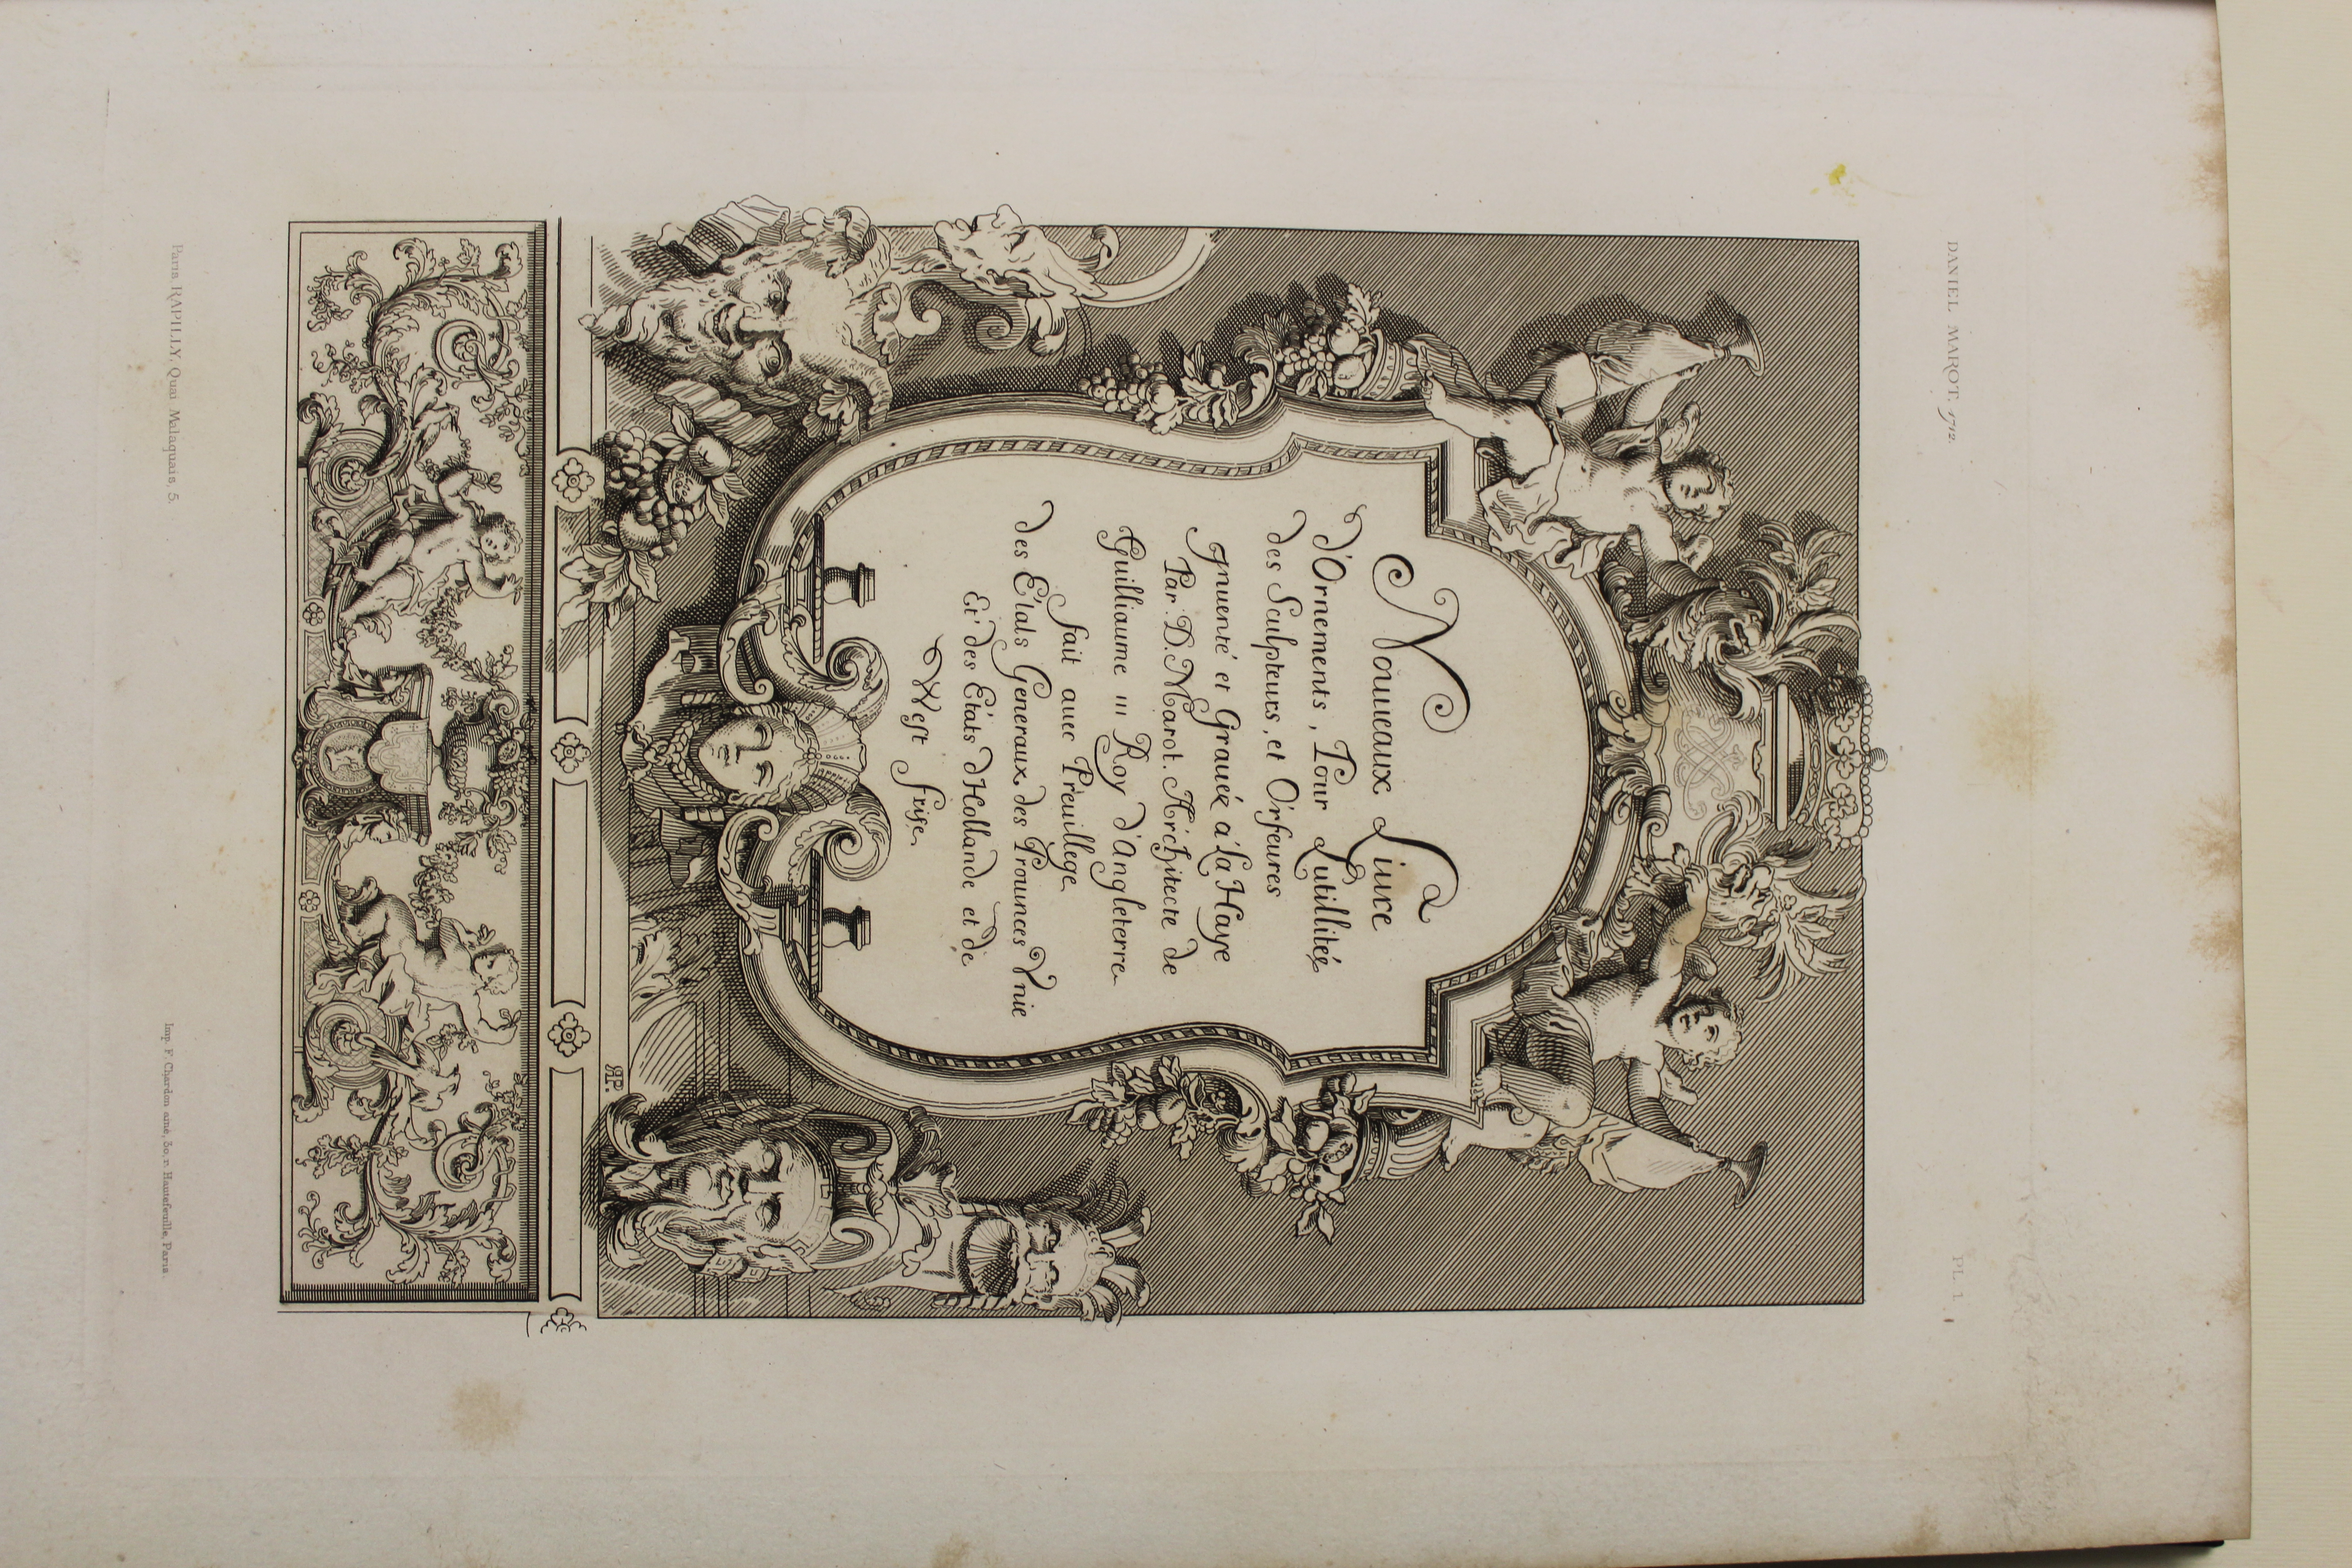 DANIEL MAROT. 1712.
PL. 1.
Nouueaux Liure
d'Ornements, Pour Lutillitée
des Sculpteurs, et Orfeures
Jnuenté et Grauéz a la Haye
Par D. Marot. Architecte de
Guilliaume III Roy d'Angleterre
fait auec Preuillege
des Etats Generaux des Prouinces Vnie
Et des Etats d'Hollande et de
West frise
RP.
Paris, RAPILLY, Quai Malaquais, 5.
Imp. F. Chardon ainé, 30, r. Hautefeuille, Paris.